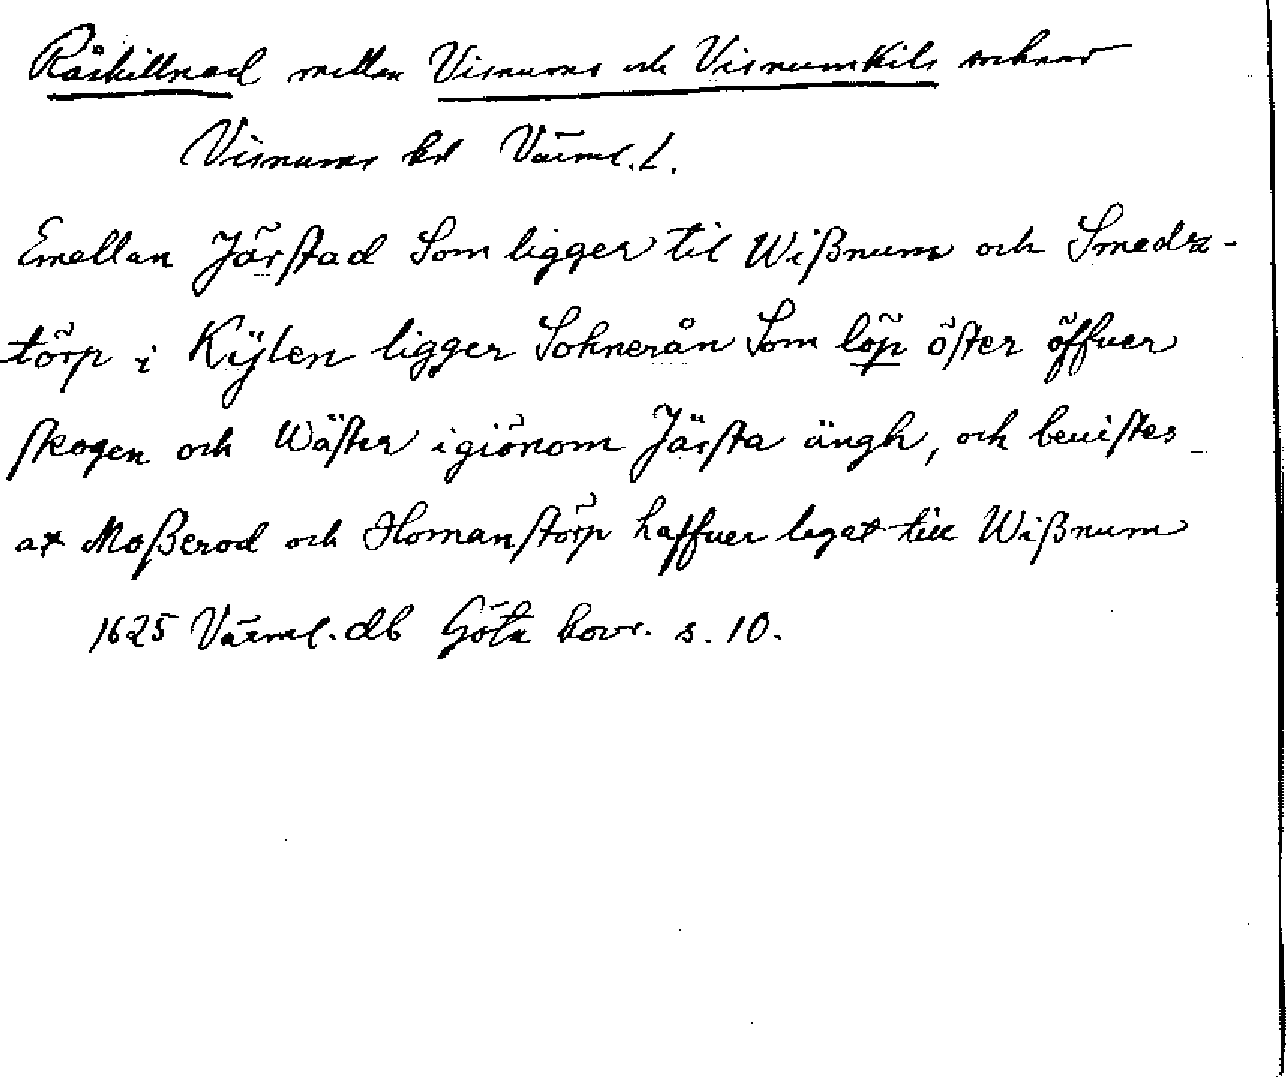 Råskillnad mellan Visnums och Visnumkils socknar
Visnums hd Värml. l.
Emellan Järstad Som ligger til Wißnum och Smedz-
törp i Kÿlen ligger Soknerån Som löp öster öffuer
skogen och Wäster igiönom Järsta ängh, och beuistes
at Moßerod och Homanstörp haffuer leget till Wißnum
1625 Värml. db Göta hovr. s. 10.